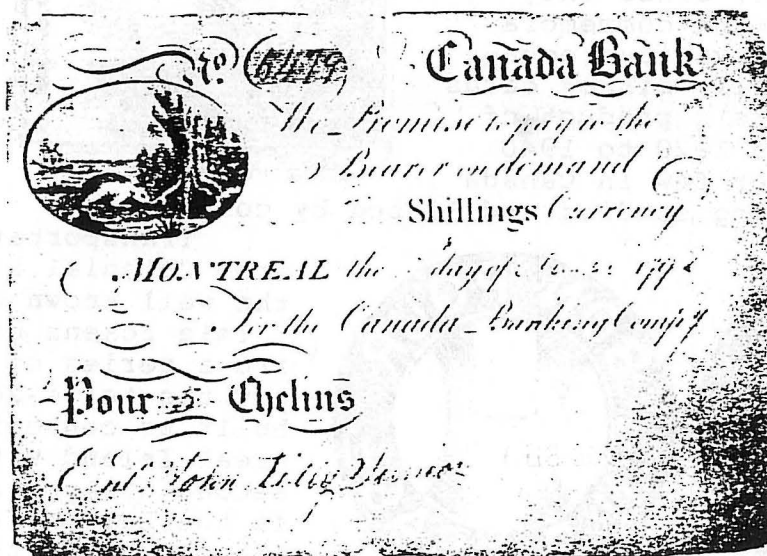 No. 6479
Canada Bank
We Promise to pay to the
Bearer on demand
Shillings Currency
MONTREAL the day of 179
For the Canada Banking Compy
Pour 5 Chelins
Entd. John Lilly Junior